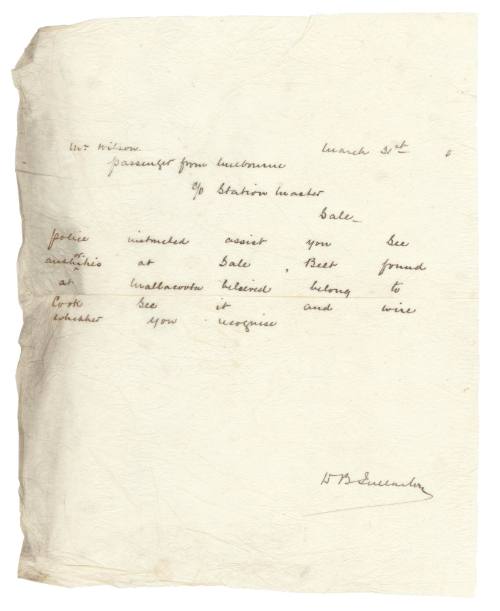 Mr Wilson March 31st
passenger from Melbourne
c/o Station Master
Sale
police instructed assist you see
authorities at Sale, Belt found
at Mallacoota believed belong to
Cook See it and wire
whether you recognise
D B